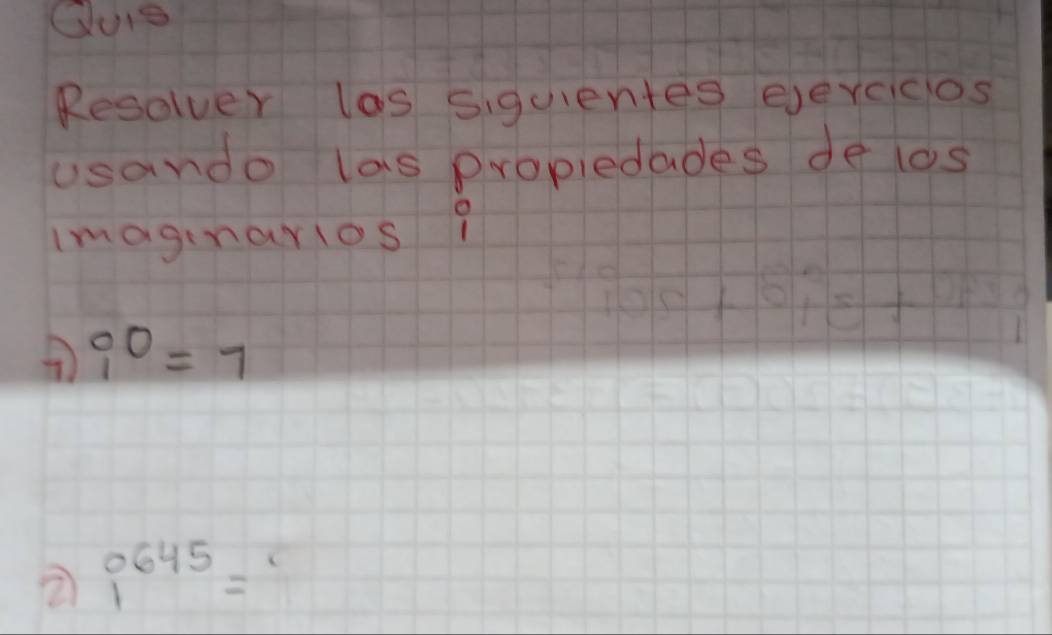 Quis
Resolver las siguientes ejercicios
usando las propiedades de los
imaginarios i
1) i⁰ = 1
2) i⁶⁴⁵ =